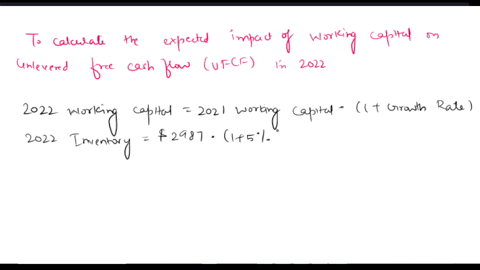 To calculate the expected impact of working capital on
Unlevered free cash flow (UFCF) in 2022
2022 working capital = 2021 working capital · (1 + Growth Rate)
2022 Inventory = $2987 · (1+5%